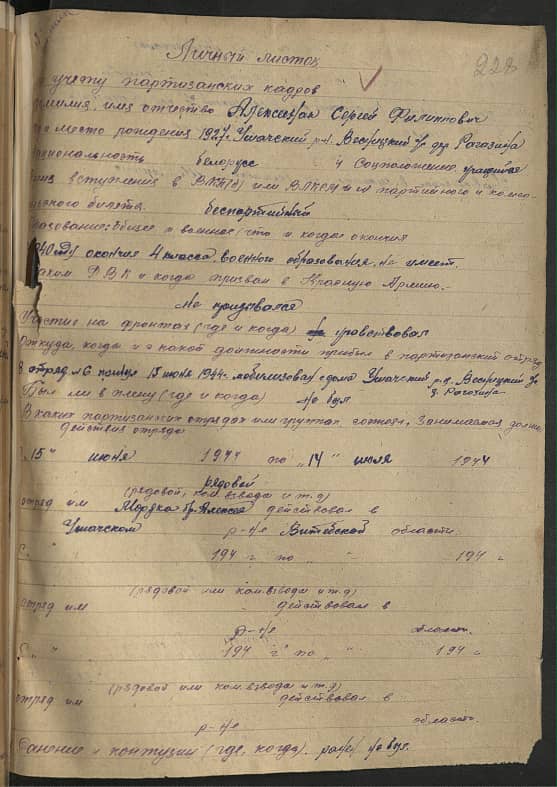 228
Личный листок
учету партизанских кадров
имя отчество Алексеенок Сергей Филиппович
место рождения 1927г. Ушачский р-н. Весницкий с/с дер Рагозина
национальность белорусс 4 Соцположение учащийся
вступления в ВКП(б) или ВЛКСМ и № партийного и комсо-
мольского билета. беспартийный
образование: общее и военное (что и когда окончил
1940 году окончил 4 класса военного образования не имеет.
Каким РВК и когда призван в Красную Армию.-
не призывался
Участие на фронтах (где и когда) не участвовал
Откуда, когда и с какой должности прибыл в партизанский отряд
В отряд №6 прибыл 15 июня 1944г. мобилизован с дома Ушачский р-н. Весницкий с/с
д. Рагозина
Был ли в плену (где и когда) не был
В каких партизанских отрядах или группах состоял, Занимаемая должн.
действия отряда
С "15" июня 1944 по "14" июля 1944
рядовой
(рядовой, ком.взвода и т.д)
отряд им бр. Алексея действовал в
Ушачском р-не Витебской области.
С " " 194 г. по " 194 г
(рядовой или ком.взвода и т.д)
отряд им действовал в
р-не области.
С " " 194 г " по " " 194 г
(рядовой или ком.взвода и т.д)
отряд им действовал в
р-не область.
Ранение и контузии (где, когда). ранен не был.